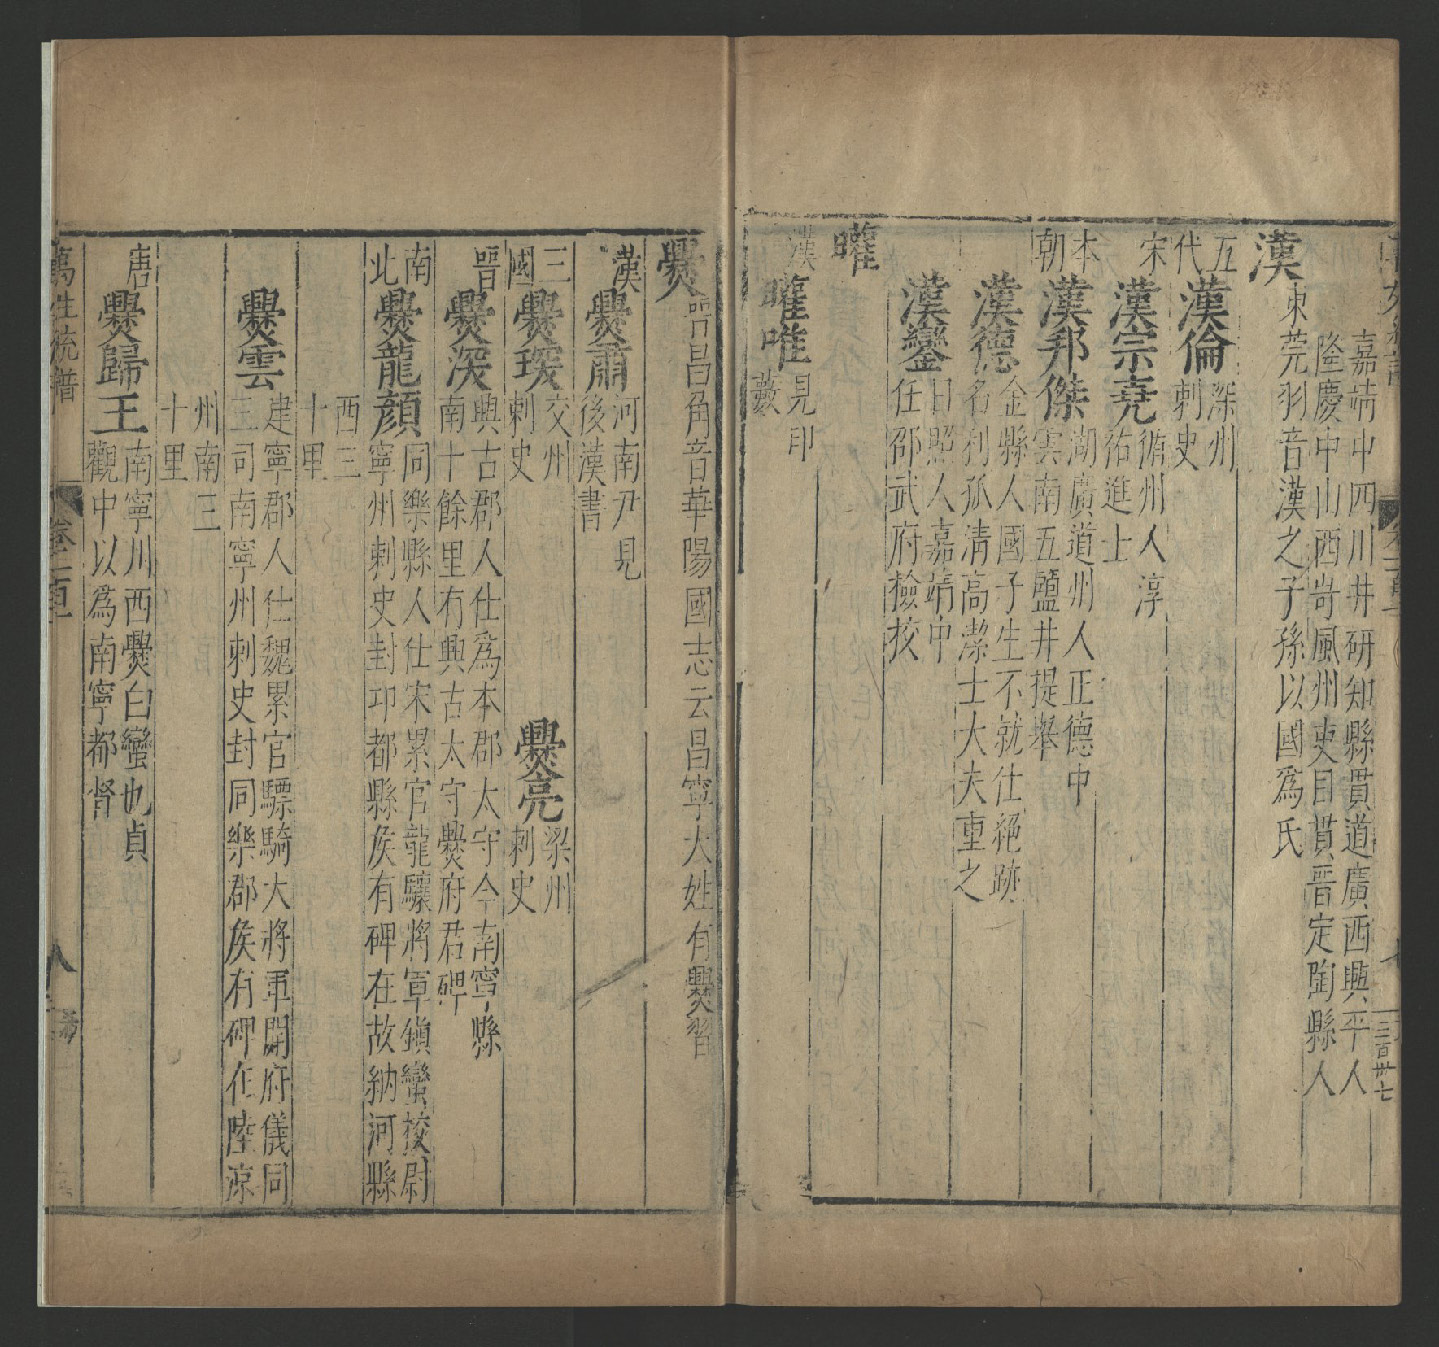 嘉靖中四川井研知縣貫道廣西興平人
隆慶中山西岢風州吏目貫晋定陶縣人
三百卅七
漢
東莞羽音漢之子孫以國為氏
五代
漢倫
深州
刺史
宋
漢宗堯
脩州人淳
祐進士
本朝
漢邦傑
湖廣道州人正德中
雲南五鹽井提舉
金縣人國子生不就仕絕跡
漢德
名利孤清高潔士大夫重之
漢鑾
日照人嘉靖中
任邵武府檢校
曜
漢
曜唯
見印
藪
爨
晋昌角音華陽國志云昌寧大姓有爨習
漢
爨肅
河南尹見
後漢書
三國
爨琰
交州
刺史
爨亮
梁州
刺史
晋
爨深
興古郡人仕為本郡太守今南寧縣
南十餘里有興古太守爨府君碑
南北
爨龍顏
同樂縣人仕宋累官龍驤將軍鎮蠻校尉
寧州刺史封卭都縣矦有碑在故納河縣
西三
十里
爨雲
建寧郡人仕魏累官驃騎大將軍開府儀同
三司南寧州刺史封同樂郡矦有碑在陸凉
州南三
十里
唐
爨歸王
南寧川西爨白蠻也貞
觀中以為南寧都督
萬姓統譜
卷一百
八